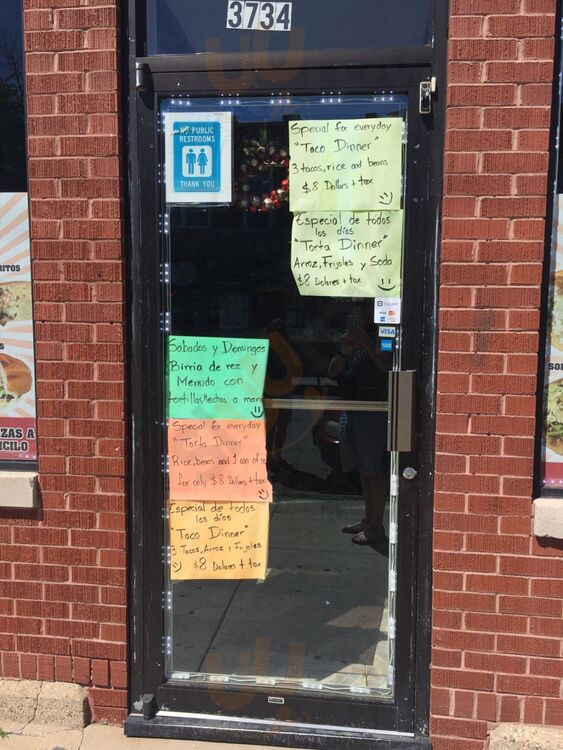 3734
NO PUBLIC
RESTROOMS
THANK YOU
Special for everyday
"Taco Dinner"
3 tacos, rice and beans
$8 Dollars + tax
Especial de todos
los días
"Torta Dinner"
Arroz, Frijoles y Soda
$8 Dolares + tax
VISA
Sabados y Domingos
Birria de rez y
Menudo con
tortillas Hechas a man
Special for everyday
"Torta Dinner"
Rice, beans and 1 can of so
for only $8 Dollars + tax
Especial de todos
los días
"Taco Dinner"
3 Tacos, Arroz y Frijoles
$8 Dolares + tax
RITOS
ZAS A
ICILO